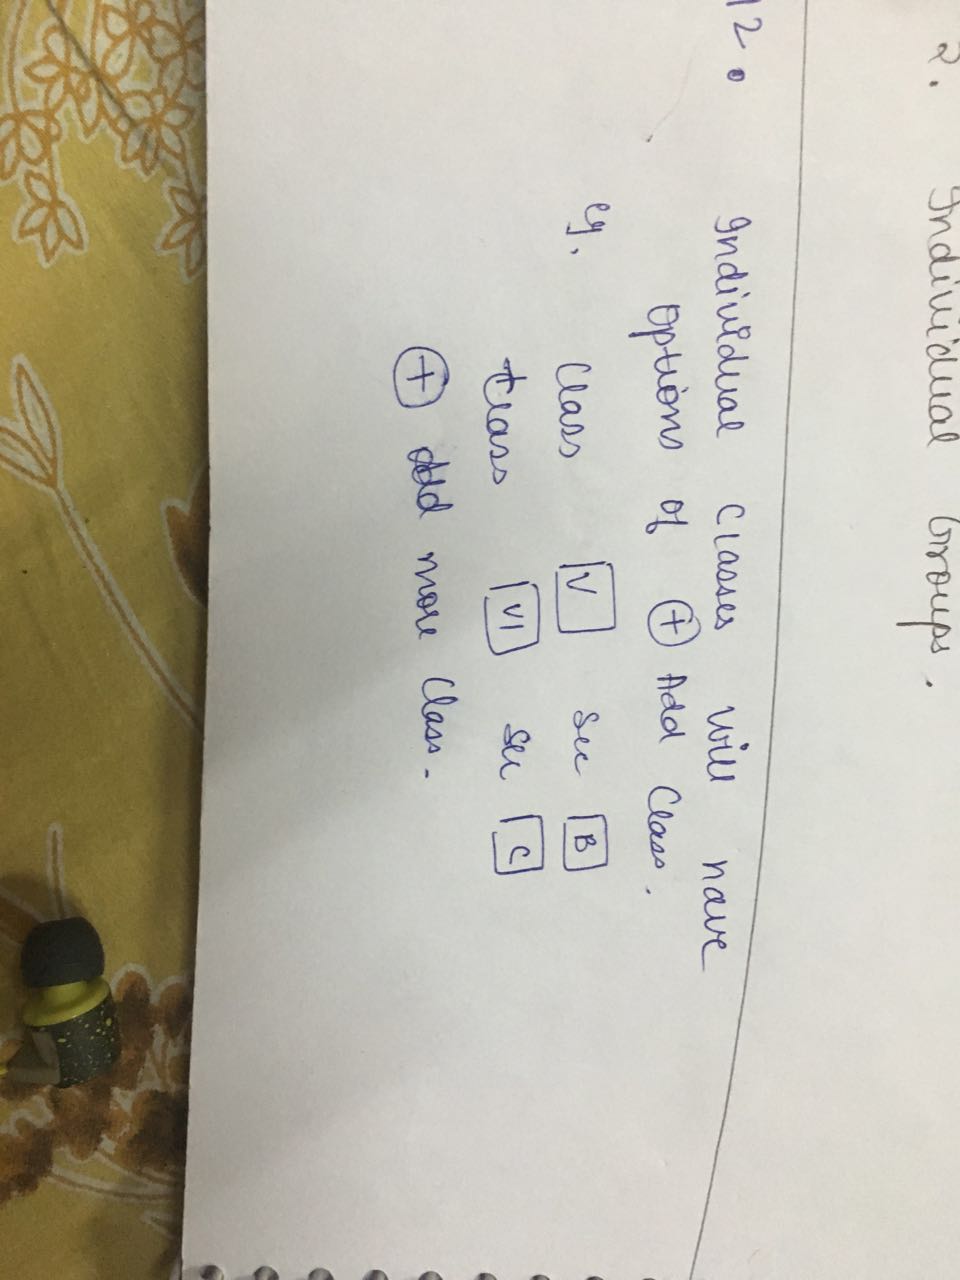 2. Individual Groups.
12. Individual Classes will have
options of + Add Class.
eg. Class V Sec B
Class VI Sec C
+ Add more Class.